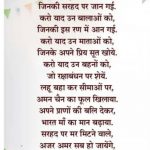 जिनकी सरहद पर जान गई.
करो याद उन बालाओं को,
जिनकी इस रण में जान गई.
करो याद उन माताओं को,
जिनके अपने प्रिय सूत खोये.
करो याद उन बहनों को,
जो रक्षाबंधन पर रोयें.
लहू बहा कर सीमाओं पर,
अमन चैन का फूल खिलाया.
अपने प्राणों की बलि देकर,
भारत माँ का मान बढ़ाया.
सरहद पर मर मिटने वाले,
अजर अमर सब हो जायेंगे.